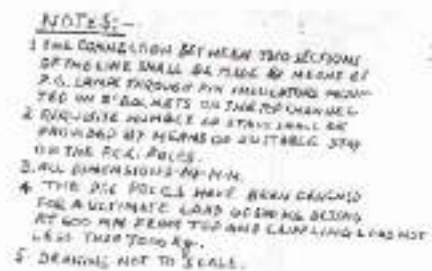 NOTES:-
1 THE CONNECTION BETWEEN TWO SECTIONS
OF THE LINE SHALL BE MADE BY MEANS OF
P.G. CLAMPS THROUGH PIN INSULATORS MOUN-
TED ON BRACKETS ON THE TOP CHANNEL
2 REQUISITE NUMBER OF STAYS SHALL BE
PROVIDED BY MEANS OF SUITABLE STAY
ON THE POLES.
3. ALL DIMENSIONS IN M.M.
4 THE PSC POLES HAVE BEEN DESIGNED
FOR A ULTIMATE LOAD OF KG BEING
AT 600 MM FROM TOP AND LOAD NOT
LESS THAN 7000 Kg.
5 DRAWING NOT TO SCALE.